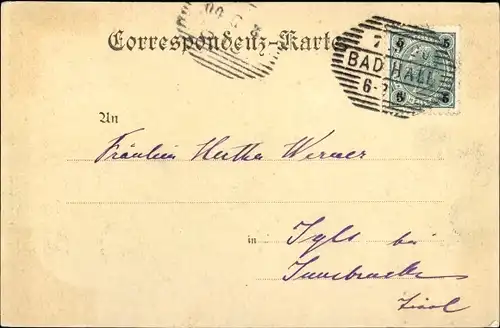 Correspondenz-Karte
5 5
BAD HALL
6-
5 5
An
Fräulein Hertha Werner
in Igls bei
Innsbruck
Tirol